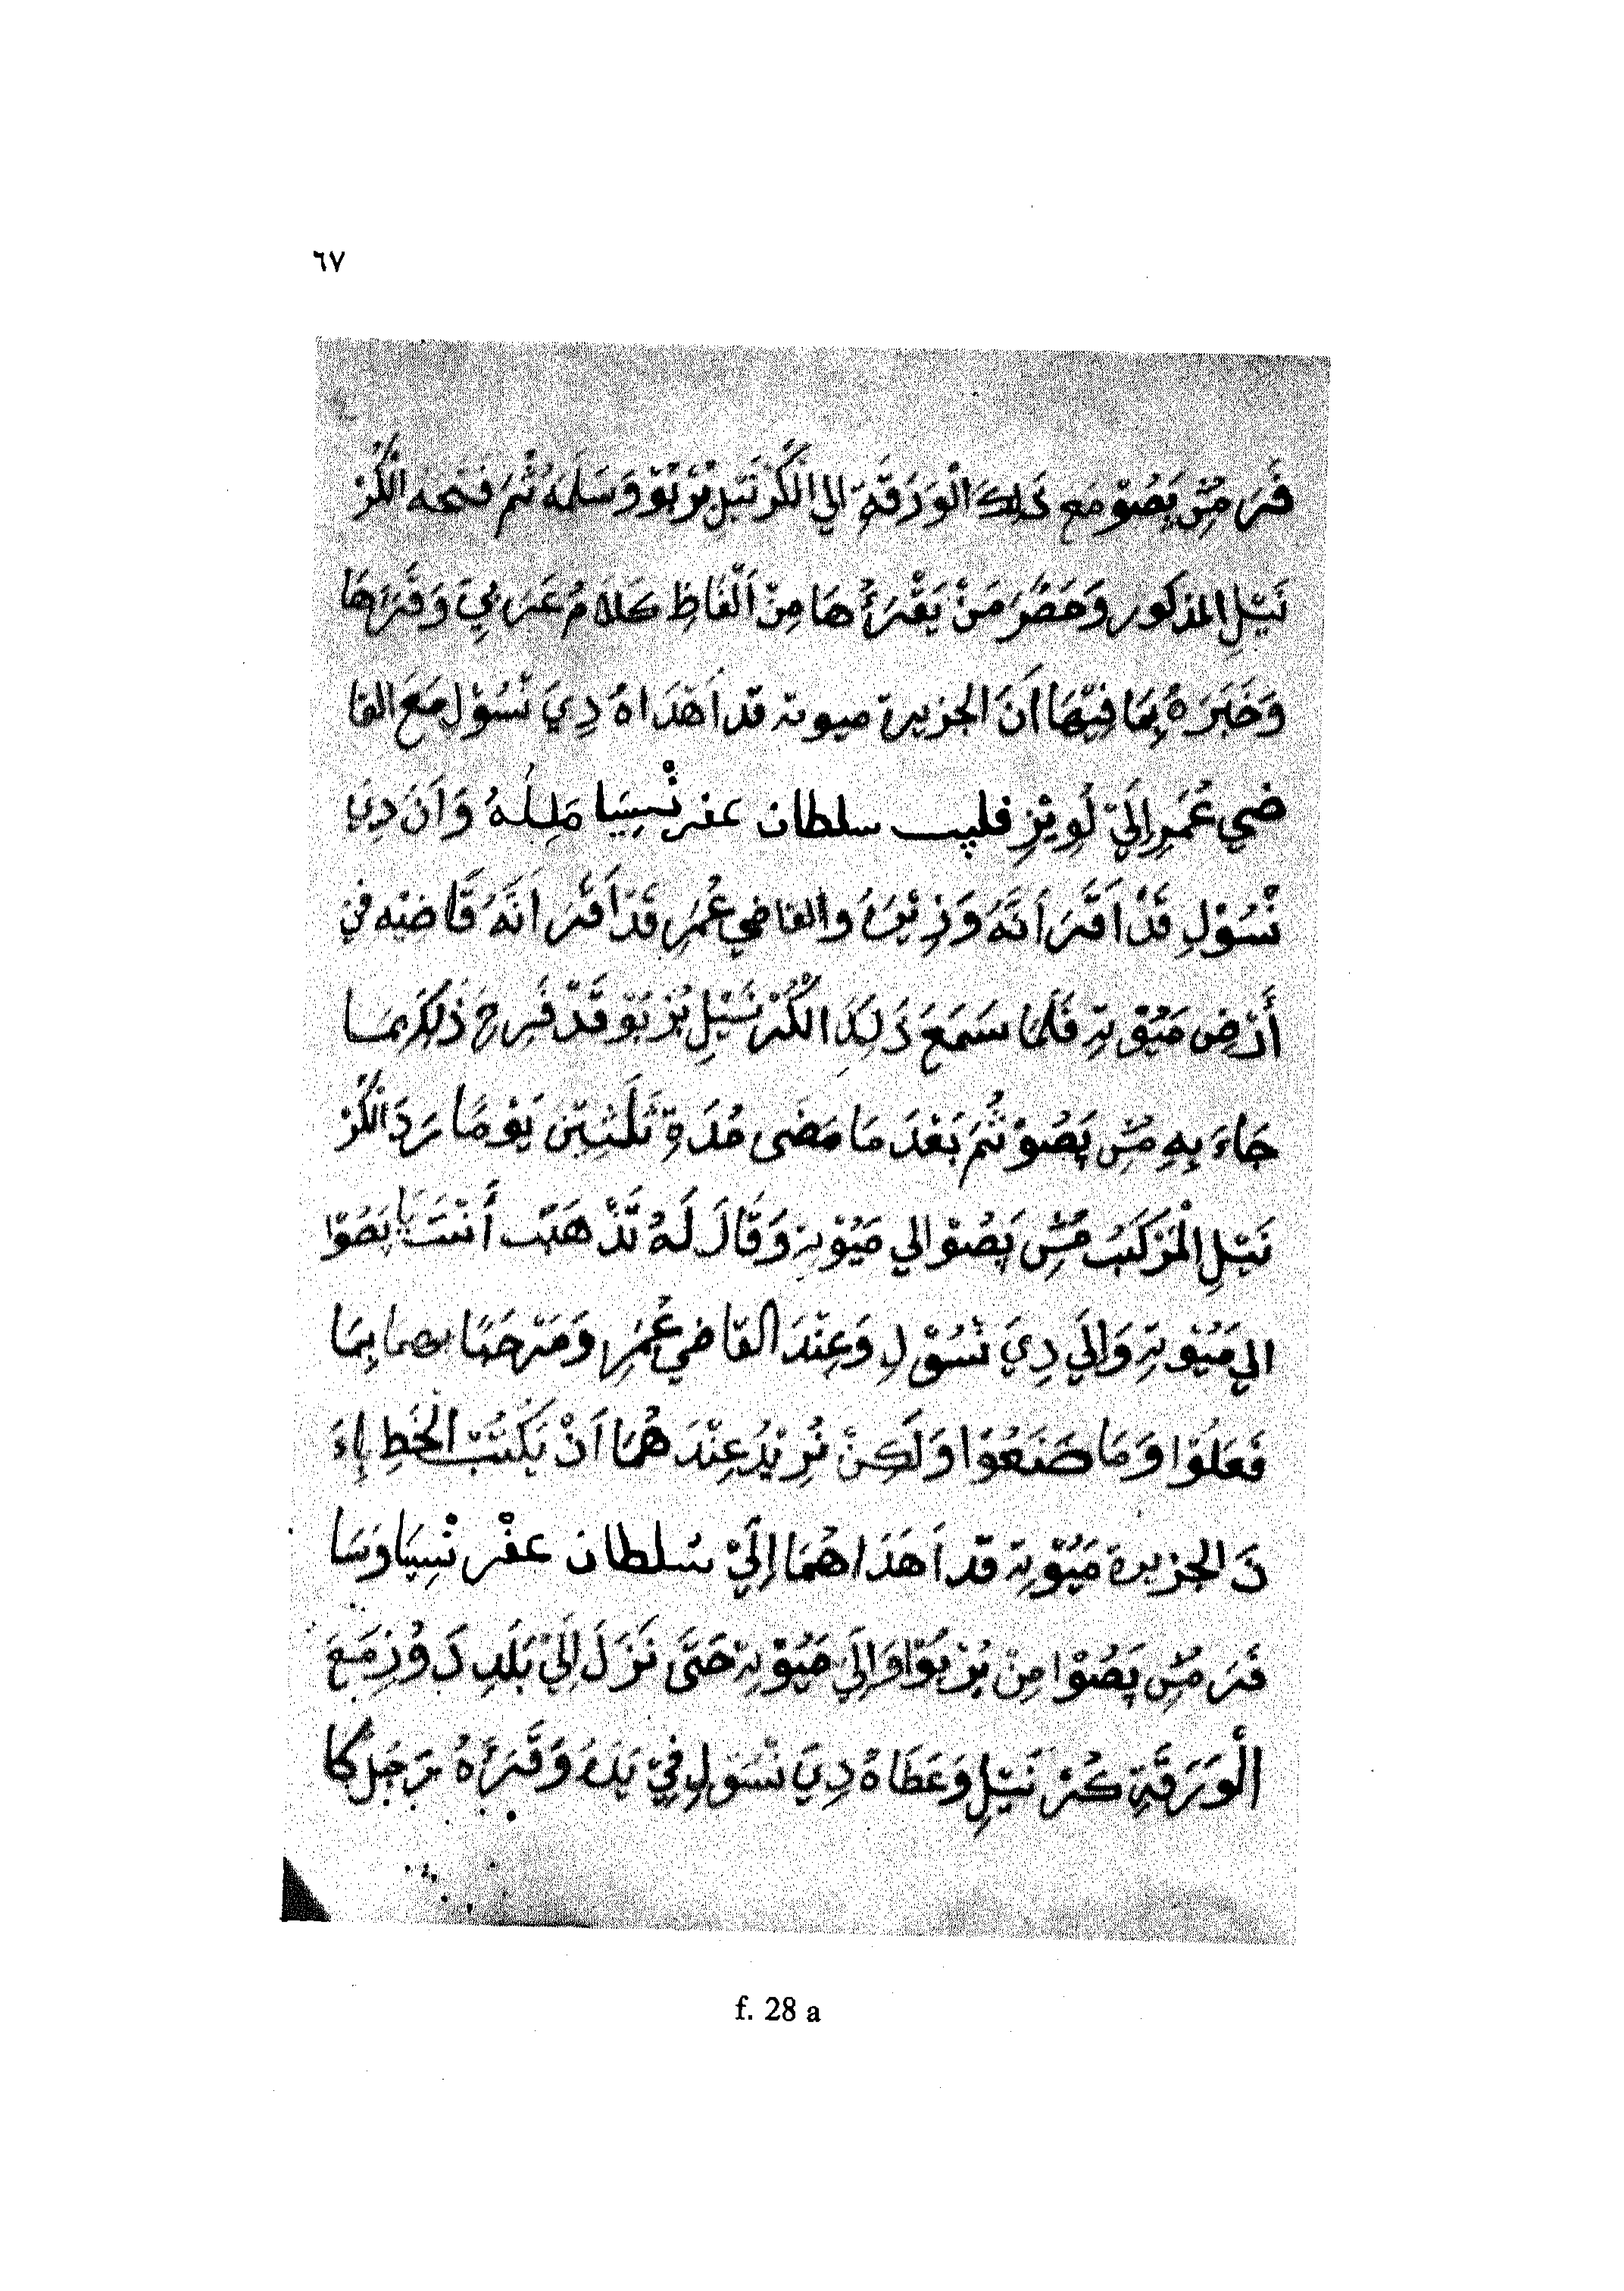 ٦٧
فَرَ مُسِ پَصُوْ مَع ذَلِكَ الْوَرَقَةِ الي الْكُرْنَيْلِ بُرْبُوْ وَسَلَمَهُ ثُمَ فَتَحَهُ الْكُرْ
نَيْلِ المذكور وَحَضَرَ مَنْ يَقْرَأُهَا مِنْ اَلْفَاظِ كَلَامُ عَرَبِيِ وَقَرَءَهَا
وَخَبَرَهُ بِمَا فِيْهَا اَنَ الجزيرة ميوتة قد اَهْدَاهُ دِيَ نْسُوْلِ مَعَ القا
ضي عُمَرِ اِلَيْ لُوِيْزِ فليپ سلطان عفرنْسِيَا مَلِكُهُ وَاَنَ دِيَ
نْسُوْلِ قَدْ اَقَرَ اَنَّهُ وَزِيْرُهُ والقاضي عُمَرِ قَدْ اَقَرَ اَنَّهُ قَاضِيْه في
أَرْضِ مَيُوْتةِ فَلَمَا سَمَعَ ذَلِكَ الكُرْنَيْلِ بُرْبُوْ قَدْ فَرِحَ ذَلِكَ بِمَا
جَاءَ بِهِ مُسِ پَصُوْ ثُمَ بَعْدَ مَا مَضَى مُدَةِ ثَلَثِيْنَ يَوْمًا رَدَ الْكُرْ
نَيْلِ الْمَرْكَبُ مُسِ پَصُوْ الي مَيُوْتة وَقَالَ لَهُ تَذْهَبْ أَنْتَ يَا پَصُوْا
الي مَيُوْتةِ وَاِلَي دِيَ نْسُوْلِ وَعِنْدَ القاضي عُمَرِ وَمَرْحَبًا بهما بِمَا
فَعَلُوْا وَمَا صَنَعُوْا وَلَكِنْ نُرِيْدُ عِنْدَهُمَا اَنْ يَكْتُبْ الْخَطِ بِاءَ
نَ الجزيرة مَيُوْتة قد اَهَدَاهُمَا اِلَيْ سُلطان عفْرنْسِيَا وَسَا
فَرَ مُسِ پَصُوْا مِنْ بُرْبُوْا وَاِلَي مَيُوْتةِ حَتَّى نَزَلَ اِلَيْ بَلَدِ دَوُزِ مَعَ
الْوَرَقَةِ كُرْنَيْلِ وَعَطَاهُ دِيَ نْسُوْلِ فِيْ يَدَهُ وَقَرَءَهُ رَجُلٌ كَا
f. 28 a